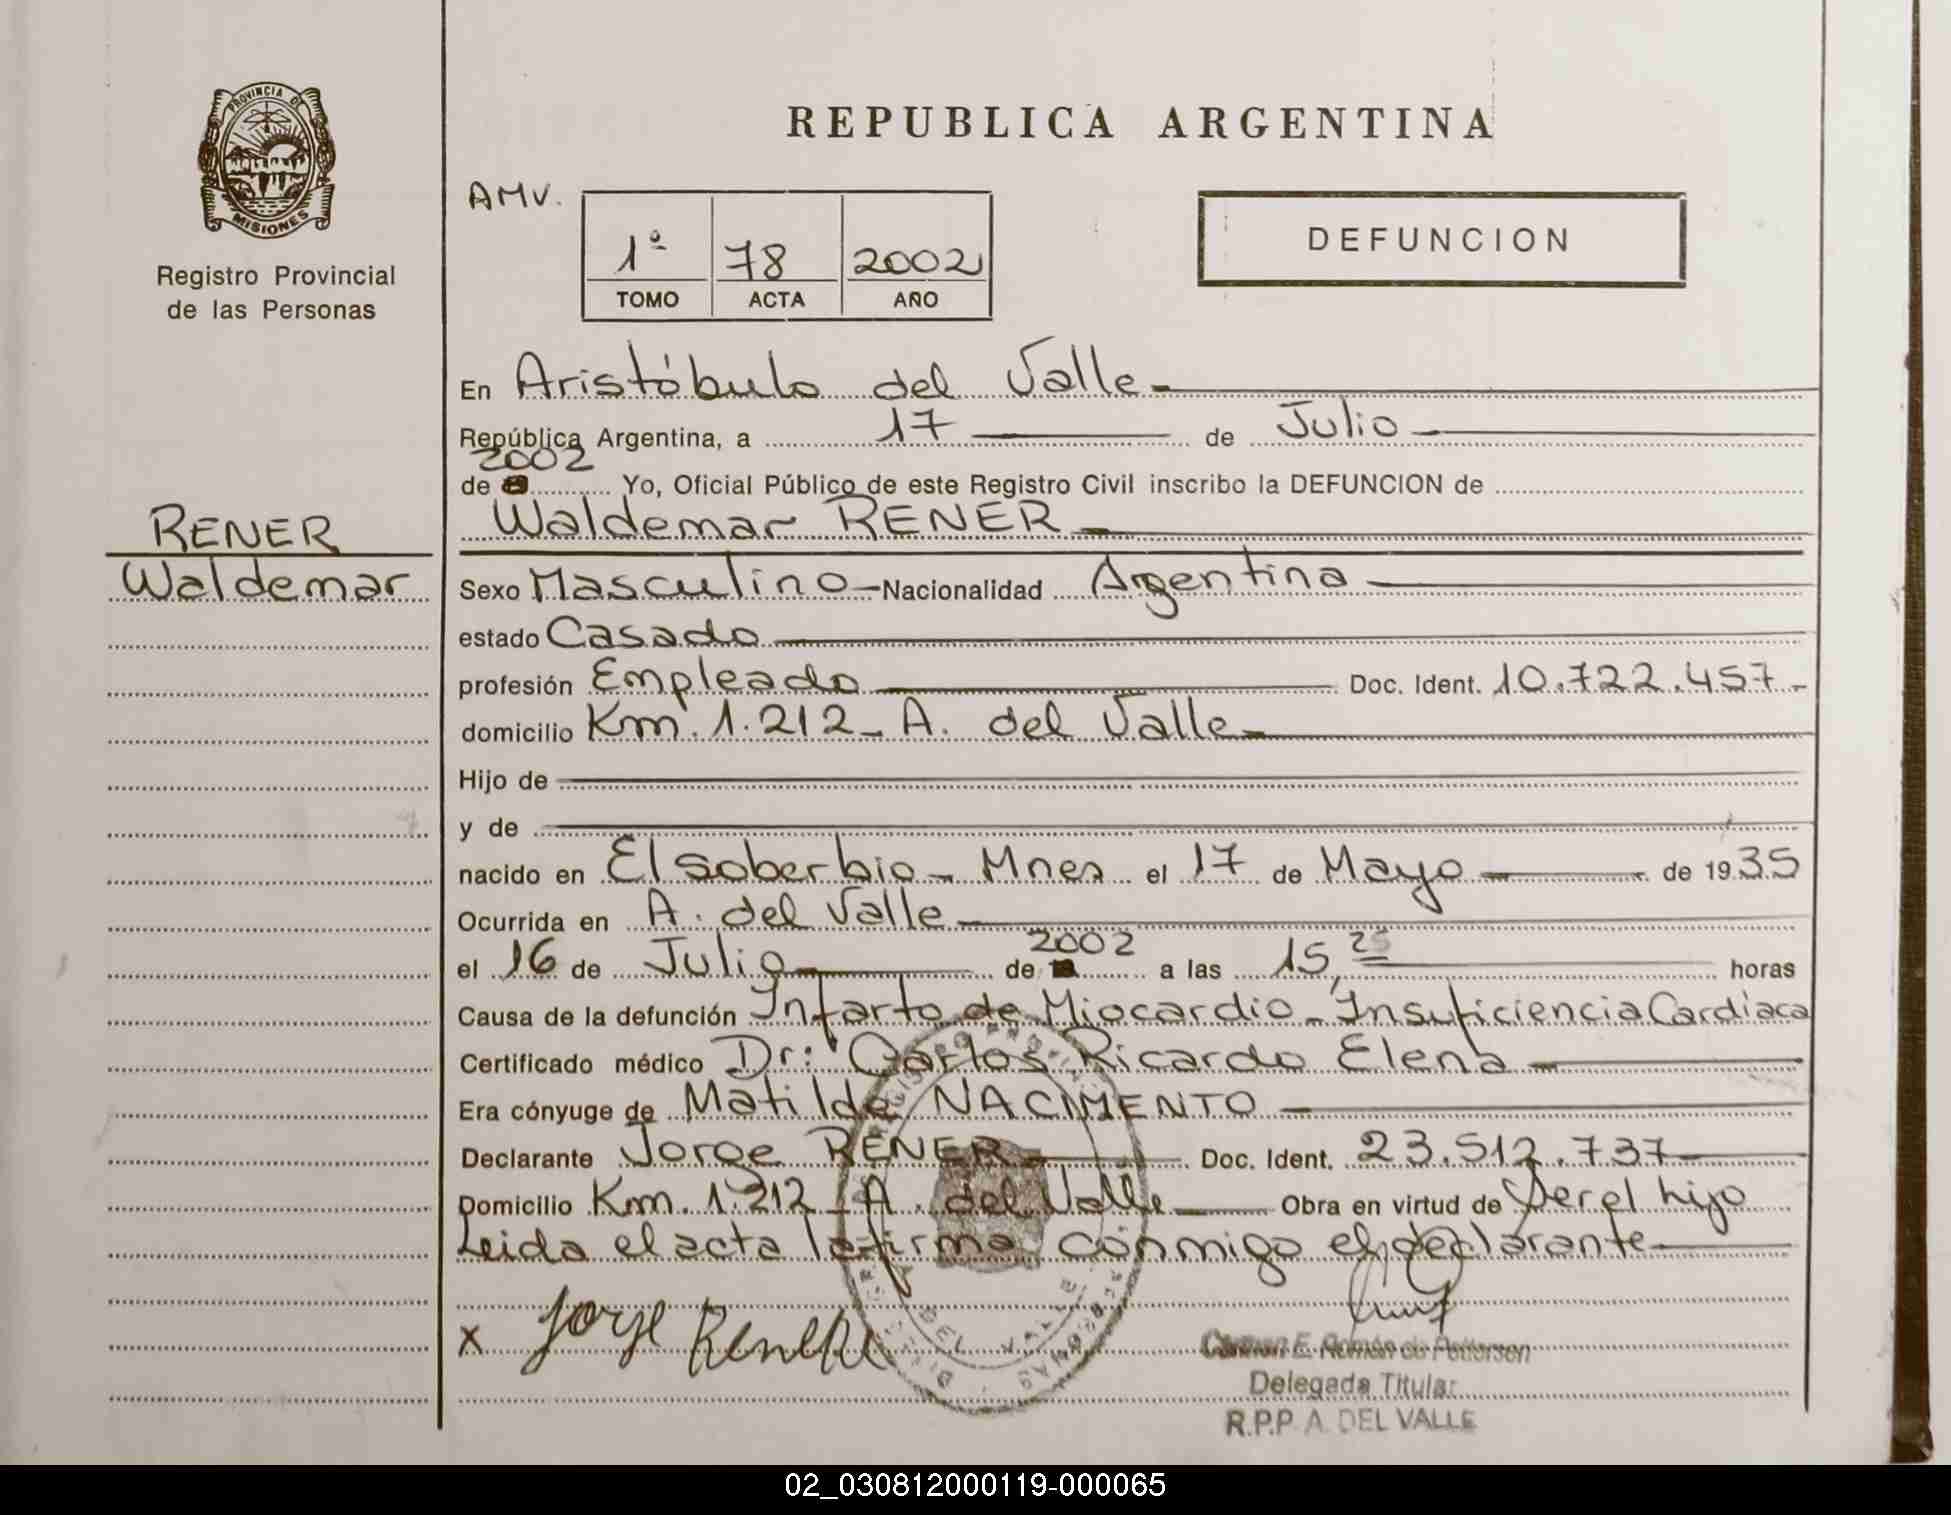 PROVINCIA DE
MISIONES
Registro Provincial
de las Personas
REPUBLICA ARGENTINA
AMV.
1º 78 2002
TOMO ACTA AÑO
DEFUNCION
En Aristóbulo del Valle
República Argentina, a 17 de Julio
2002
de Yo, Oficial Público de este Registro Civil inscribo la DEFUNCION de
Waldemar RENER
RENER
Waldemar
Sexo Masculino Nacionalidad Argentina
estado Casado
profesión Empleado Doc. Ident. 10.722.457
domicilio Km. 1.212 - A. del Valle
Hijo de
y de
nacido en El soberbio - Mnes el 17 de Mayo de 1935
Ocurrida en A. del Valle
el 16 de Julio de 2002 a las 15,25 horas
Causa de la defunción Infarto de Miocardio - Insuficiencia Cardíaca
Certificado médico Dr: Carlos Ricardo Elena
Era cónyuge de Matilde NACIMENTO
Declarante Jorge RENER Doc. Ident. 23.512.737
Domicilio Km. 1.212 - A. del Valle Obra en virtud de Ser el hijo
Leida el acta la firma conmigo el declarante
x Jorge Rener
Carmen E. Román de Pettersen
Delegada Titular
R.P.P. A. DEL VALLE
DEL VALLE
02_030812000119-000065